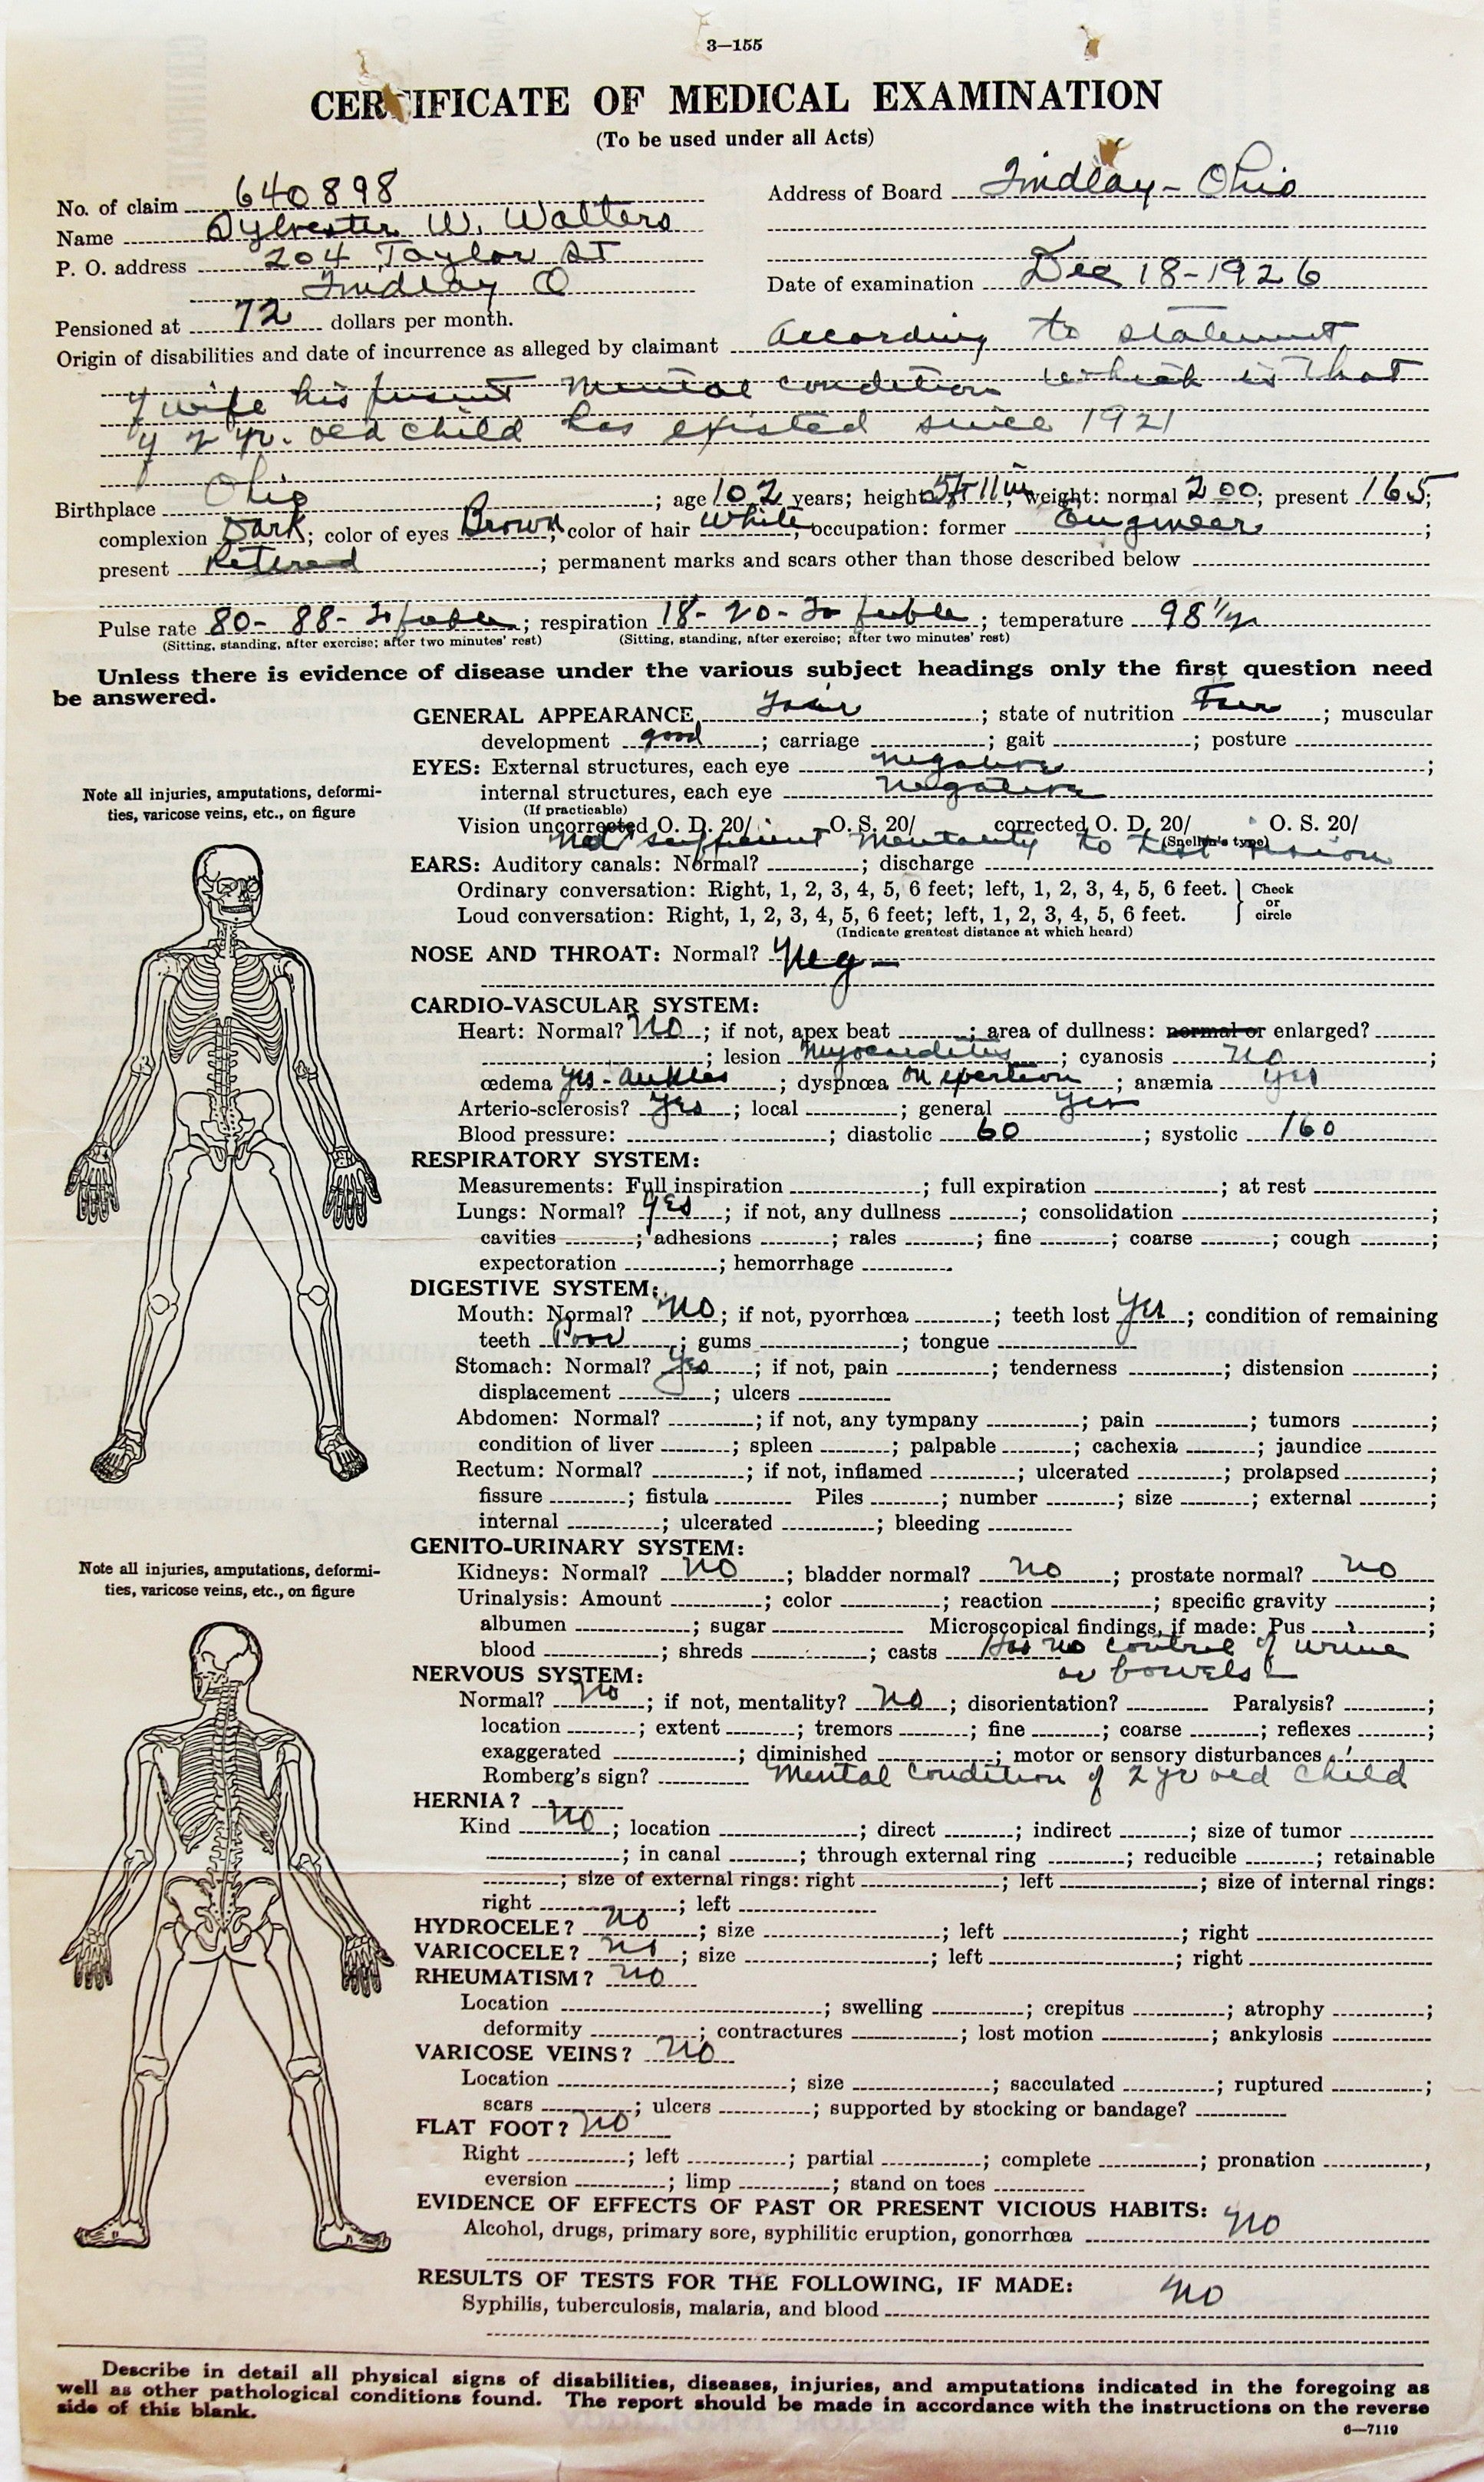 3—155
CERTIFICATE OF MEDICAL EXAMINATION
(To be used under all Acts)
No. of claim 640898
Address of Board Findlay - Ohio
Name Sylvester W. Walters
P. O. address 204 Taylor St
Findlay O
Date of examination Dec 18-1926
Pensioned at 72 dollars per month.
Origin of disabilities and date of incurrence as alleged by claimant According to statement
of wife his present mental condition which is that
of 2 yr. old child has existed since 1921
Birthplace Ohio; age 102 years; height 5 ft 11 in; weight: normal 200; present 165;
complexion Dark; color of eyes Brown; color of hair White; occupation: former Engineer;
present Retired; permanent marks and scars other than those described below
Pulse rate 80- 88- To feeble; respiration 18- 20- To feeble; temperature 98 1/2
(Sitting, standing, after exercise; after two minutes' rest) (Sitting, standing, after exercise; after two minutes' rest)
Unless there is evidence of disease under the various subject headings only the first question need
be answered.
GENERAL APPEARANCE Fair; state of nutrition Fair; muscular
development good; carriage ; gait ; posture
EYES: External structures, each eye negative;
internal structures, each eye negative
(If practicable)
Vision uncorrected O. D. 20/ O. S. 20/ corrected O. D. 20/ O. S. 20/
(Snellen's type)
Not sufficient mentality to test vision
EARS: Auditory canals: Normal? ; discharge
Ordinary conversation: Right, 1, 2, 3, 4, 5, 6 feet; left, 1, 2, 3, 4, 5, 6 feet.
Loud conversation: Right, 1, 2, 3, 4, 5, 6 feet; left, 1, 2, 3, 4, 5, 6 feet.
Check
or
circle
(Indicate greatest distance at which heard)
NOSE AND THROAT: Normal? Neg—
CARDIO-VASCULAR SYSTEM:
Heart: Normal? No; if not, apex beat ; area of dullness: normal or enlarged?
; lesion Myocarditis; cyanosis no;
œdema yes - ankles; dyspnœa on exertion; anæmia yes
Arterio-sclerosis? Yes; local ; general yes
Blood pressure: ; diastolic 60; systolic 160
RESPIRATORY SYSTEM:
Measurements: Full inspiration ; full expiration ; at rest
Lungs: Normal? yes; if not, any dullness ; consolidation ;
cavities ; adhesions ; rales ; fine ; coarse ; cough ;
expectoration ; hemorrhage .
DIGESTIVE SYSTEM:
Mouth: Normal? No; if not, pyorrhœa ; teeth lost Yes; condition of remaining
teeth Poor; gums ; tongue
Stomach: Normal? yes; if not, pain ; tenderness ; distension ;
displacement ; ulcers
Abdomen: Normal? ; if not, any tympany ; pain ; tumors ;
condition of liver ; spleen ; palpable ; cachexia ; jaundice
Rectum: Normal? ; if not, inflamed ; ulcerated ; prolapsed ;
fissure ; fistula Piles ; number ; size ; external ;
internal ; ulcerated ; bleeding
GENITO-URINARY SYSTEM:
Kidneys: Normal? No; bladder normal? no; prostate normal? no
Urinalysis: Amount ; color ; reaction ; specific gravity ;
albumen ; sugar Microscopical findings, if made: Pus ;
blood ; shreds ; casts Has no control of urine
or bowels
NERVOUS SYSTEM:
Normal? No; if not, mentality? No; disorientation? Paralysis? ;
location ; extent ; tremors ; fine ; coarse ; reflexes ;
exaggerated ; diminished ; motor or sensory disturbances
Romberg's sign? Mental condition of 2 yr old child
HERNIA?
Kind No; location ; direct ; indirect ; size of tumor
; in canal ; through external ring ; reducible ; retainable
; size of external rings: right ; left ; size of internal rings:
right ; left
HYDROCELE? No; size ; left ; right
VARICOCELE? No; size ; left ; right
RHEUMATISM? No
Location ; swelling ; crepitus ; atrophy ;
deformity ; contractures ; lost motion ; ankylosis
VARICOSE VEINS? No
Location ; size ; sacculated ; ruptured ;
scars ; ulcers ; supported by stocking or bandage?
FLAT FOOT? No
Right ; left ; partial ; complete ; pronation ,
eversion ; limp ; stand on toes
EVIDENCE OF EFFECTS OF PAST OR PRESENT VICIOUS HABITS: No
Alcohol, drugs, primary sore, syphilitic eruption, gonorrhœa
RESULTS OF TESTS FOR THE FOLLOWING, IF MADE: No
Syphilis, tuberculosis, malaria, and blood
Note all injuries, amputations, deformi-
ties, varicose veins, etc., on figure
Note all injuries, amputations, deformi-
ties, varicose veins, etc., on figure
Describe in detail all physical signs of disabilities, diseases, injuries, and amputations indicated in the foregoing as
well as other pathological conditions found. The report should be made in accordance with the instructions on the reverse
side of this blank.
6—7119